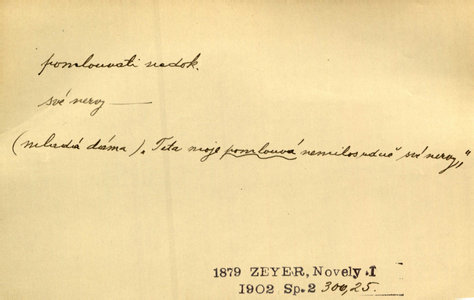 pomlouvati nedok.
své nervy —
(mladá dáma). Teta moje pomlouvá nemilosrdně své nervy„“
1879 ZEYER, Novely I
1902 Sp. 2 300,25.